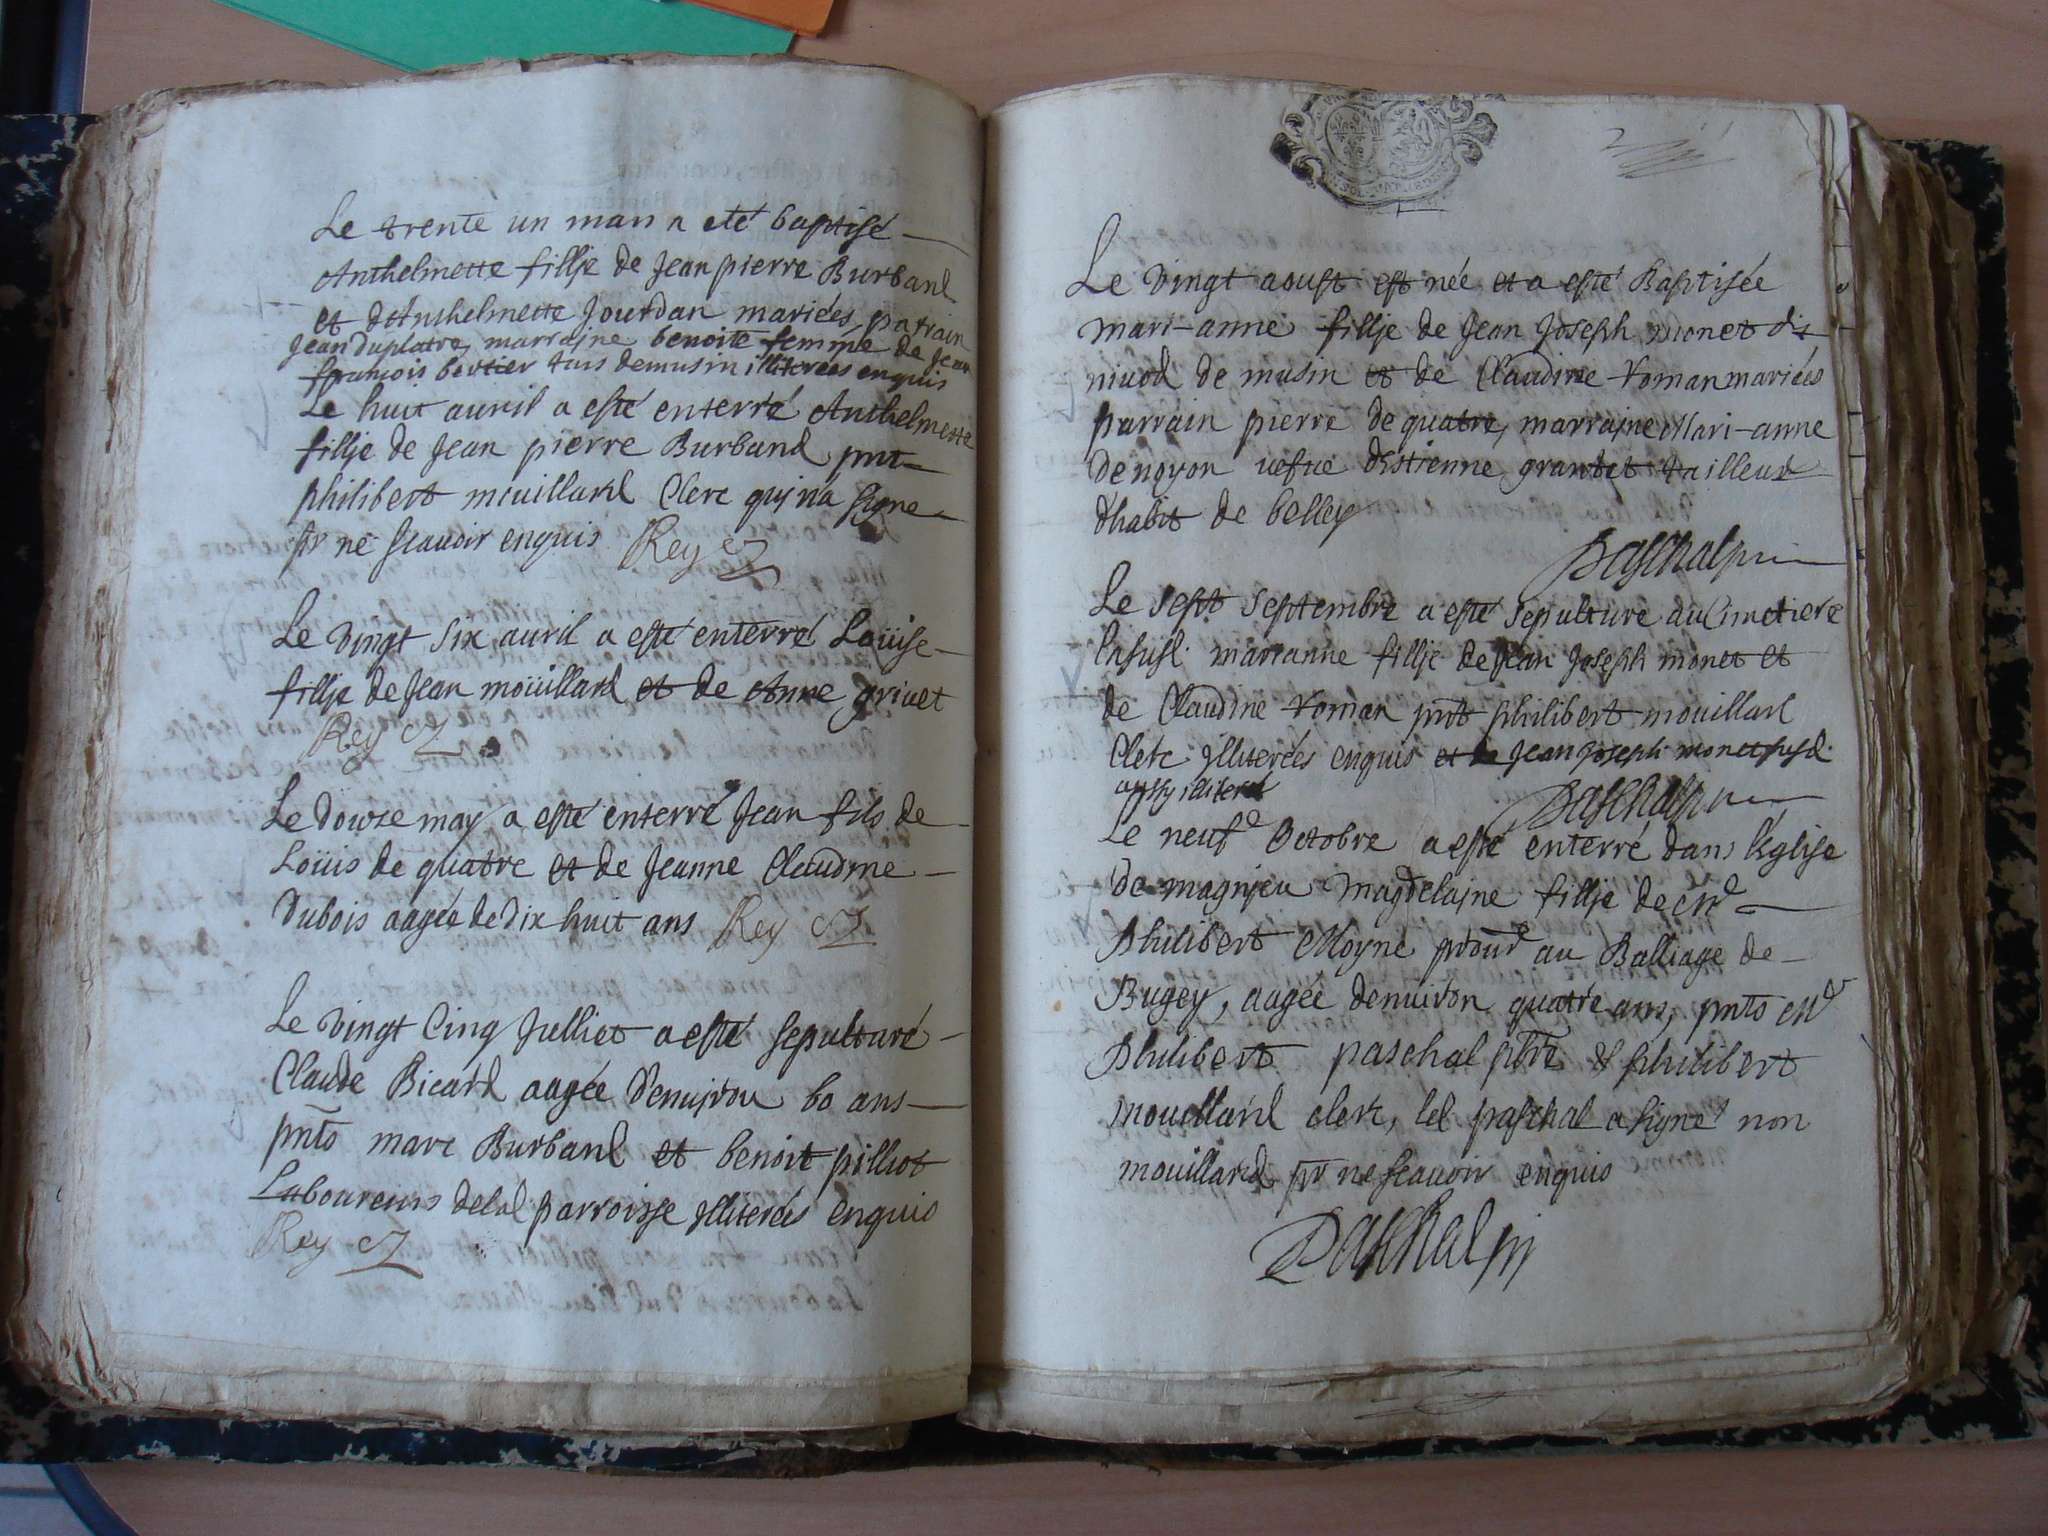 Le trente un mars a eté baptisé
Anthelmette fillje de Jean pierre Burband
et d'Anthelmette Jourdan mariés, patrain
Jean Duplatre, marrajne benoite femme de Jean
françois bertier tous de musin illiterées enquis
Le huit auril a esté enterré Anthelmette
fillje de Jean pierre Burband pnt
philibert mouillard Clerc quj n'a signe
pr ne scauoir enquis Rey
Le vingt six auril a esté enterré Loüise
fillje de Jean moüillard et de Anne griuet
Rey
Le douze may a esté enterré Jean fils de
Loüis de quatre et de Jeanne Claudine
Dubois aagée de dix huit ans Rey
Le vingt Cinq Julliet a esté sepulturé
Claude Bicard aagée d'enujron 60 ans
pnts marc Burband et benoit pilliot
Laboureurs de lad parroisse jlliterés enquis
Rey
Le vingt aoust est née et a esté Baptisée
mari-anne fillje de Jean Joseph monet dit
niuod de musin et de Claudine Roman mariés
parrain pierre de quatre, marrajne Mari-anne
de noyon uefue d'Estienne grantet tailleur
d'habit de belley
Paschal
Le sept Septembre a esté sepulture au Cimetiere
marianne fillje de Jean Joseph monet et
de Claudine Roman pnt philibert mouillard
Clerc jlliterées enquis et de Jean Joseph monet susd
aussy illiteré Paschal
Le neufe Octobre a esté enterré dans l'église
de magnjeu magdelajne fillje de Mr
Philibert Moyne procur au Balliage de
Bugey, aagée denuiron quatre ans, pnts Mr
Philibert paschal ptre & philibert
mouillard clerc, led paschal a signé non
mouillard pr ne scauoir enquis
Paschal